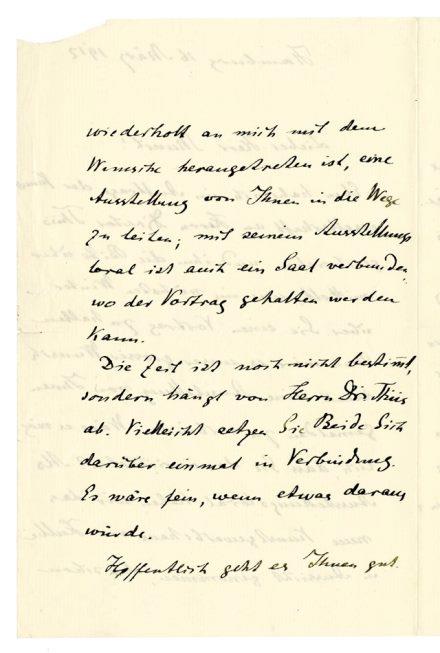 wiederholt an mich mit dem
Wunsche herangetreten ist, eine
Ausstellung von Ihnen in die Wege
zu leiten; mit seinem Ausstellungs
local ist auch ein Saal verbunden,
wo der Vortrag gehalten werden
kann.
Die Zeit ist noch nicht bestimmt,
sondern hängt von Herrn Dr. Thiis
ab. Vielleicht setzen Sie Beide Sich
darüber einmal in Verbindung.
Es wäre fein, wenn etwas daraus
würde.
Hoffentlich geht es Ihnen gut.